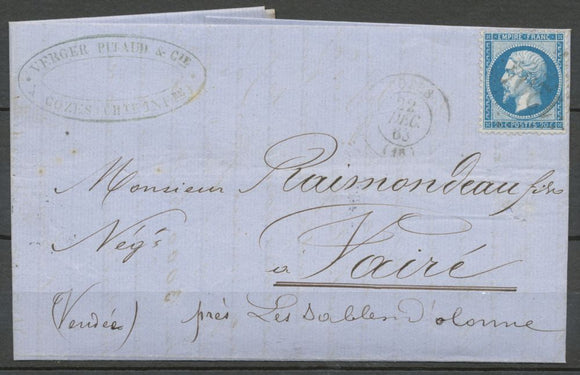 VERGER PITAUD & CIE
COZES
22
DÉC.
63
(16)
EMPIRE FRANC
20 C POSTES 20 C
Monsieur Raimondeau fils
Négt
a Vairé
(Vendée) près Les Sables d'olonne